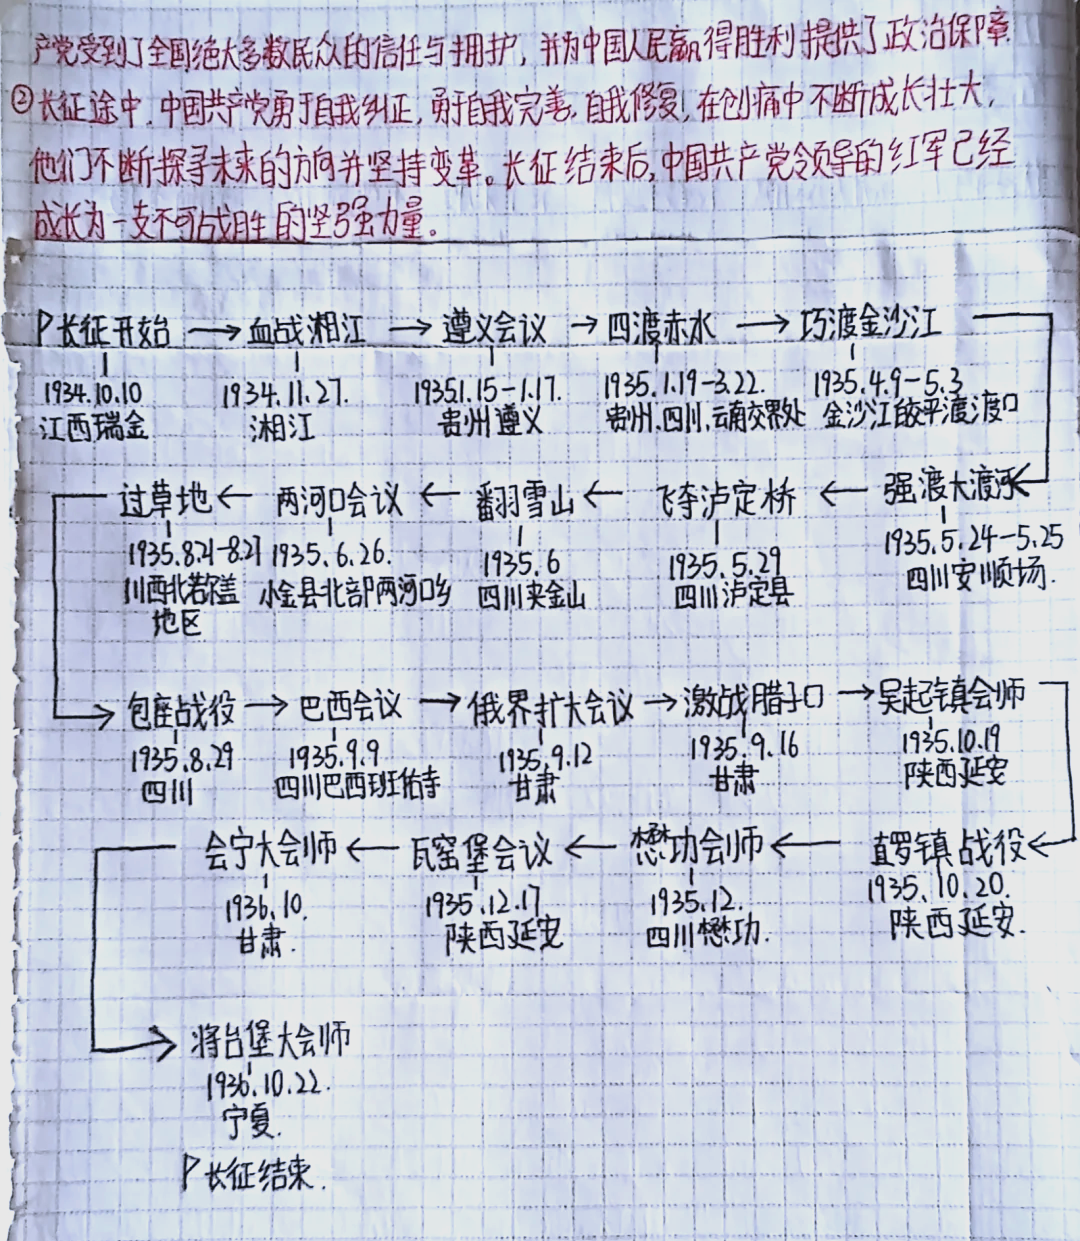 产党受到了全国绝大多数民众的信任与拥护，并为中国人民赢得胜利提供了政治保障
②长征途中，中国共产党勇于自我纠正，勇于自我完善，自我修复，在创痛中不断成长壮大，
他们不断探寻未来的方向并坚持变革。长征结束后，中国共产党领导的红军已经
成长为一支不可战胜的坚强力量。
长征开始 → 血战湘江 → 遵义会议 → 四渡赤水 → 巧渡金沙江
1934.10.10 1934.11.27. 1935.1.15-1.17. 1935.1.19-3.22. 1935.4.9-5.3
江西瑞金 湘江 贵州遵义 贵州、四川、云南交界处 金沙江皎平渡渡口
过草地 ← 两河口会议 ← 翻雪山 ← 飞夺泸定桥 ← 强渡大渡河
1935.8.21-8.27 1935.6.26. 1935.6 1935.5.29 1935.5.24-5.25
川西北若尔盖 小金县北部两河口乡 四川夹金山 四川泸定县 四川安顺场.
地区
包座战役 → 巴西会议 → 俄界扩大会议 → 激战腊子口 → 吴起镇会师
1935.8.29 1935.9.9 1935.9.12 1935.9.16 1935.10.19
四川 四川巴西班佑寺 甘肃 甘肃 陕西延安
会宁大会师 ← 瓦窑堡会议 ← 懋功会师 ← 直罗镇战役
1936.10. 1935.12.17 1935.12. 1935.10.20.
甘肃. 陕西延安 四川懋功. 陕西延安.
将台堡大会师
1936.10.22.
宁夏.
长征结束.